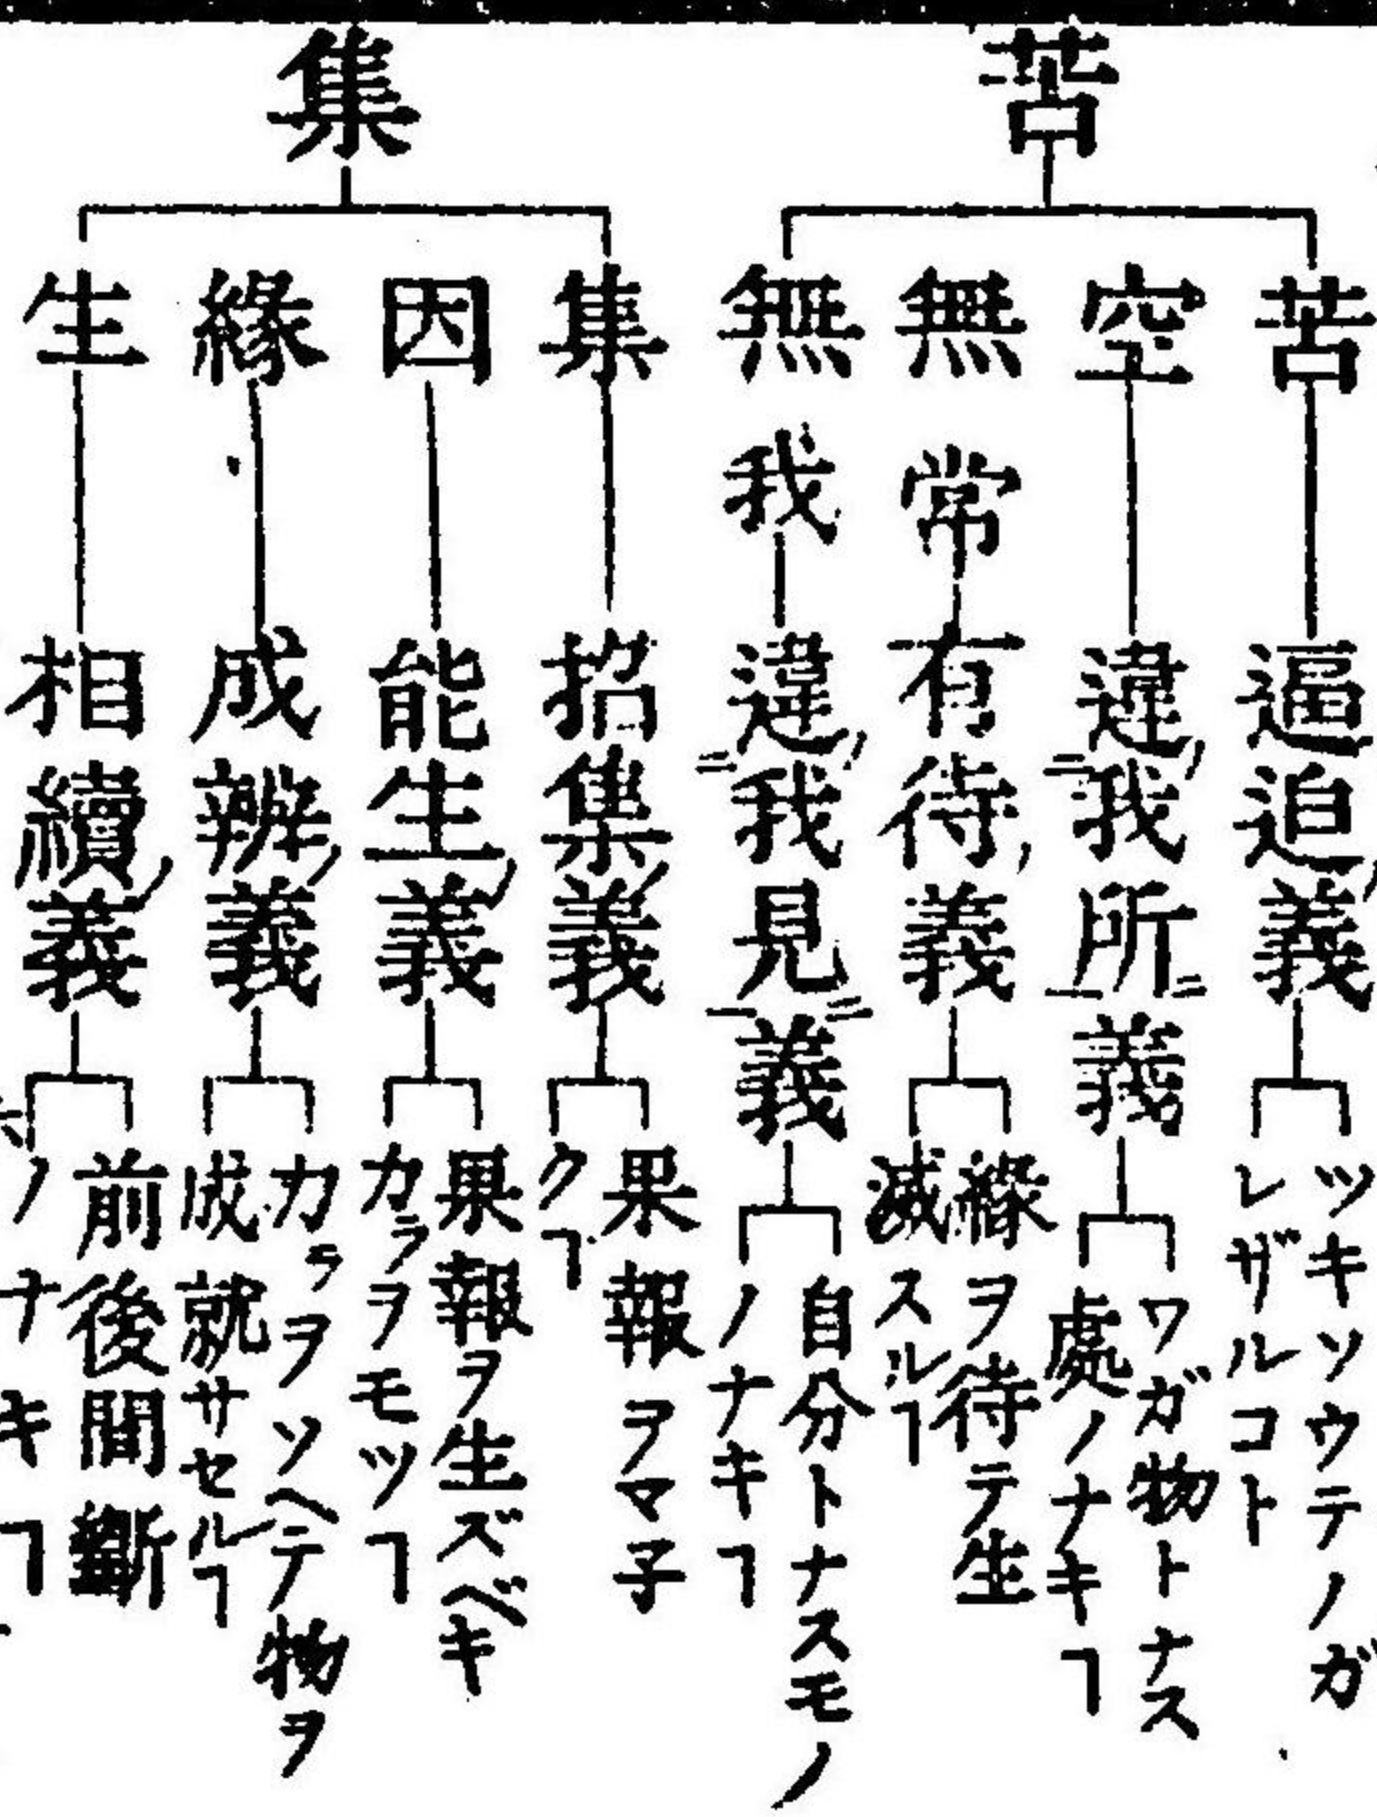 苦
苦
逼迫ノ義
ツキソウテノガ
レザルコト
空
違ノ我所ニ義
ワガ物トナス
處ノナキヿ
無常
有待ノ義
縁ヲ待テ生
滅スルヿ
無我
違ノ我見ニ義
自分トナスモノ
ノナキヿ
集
集
招集ノ義
果報ヲマ子
クヿ
因
能生ノ義
果報ヲ生ズベキ
カラヲモツヿ
縁
成辨ノ義
カラヲソヘテ物ヲ
成就サセルヿ
生
相續ノ義
前後間斷
ノナキヿ